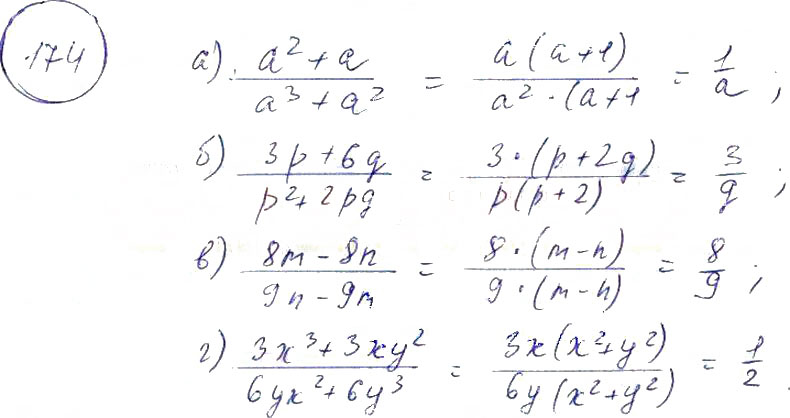 174
а) (a² + a)/(a³ + a²) = a(a+1)/(a² · (a+1) = 1/a ;
б) (3p + 6q)/(p² + 2pq) = 3 · (p + 2q)/(p(p+2)) = 3/q ;
в) (8m − 8n)/(9n − 9m) = 8 · (m−n)/(9 · (m−n)) = 8/9 ;
г) (3x³ + 3xy²)/(6yx² + 6y³) = 3x(x² + y²)/(6y(x² + y²)) = 1/2